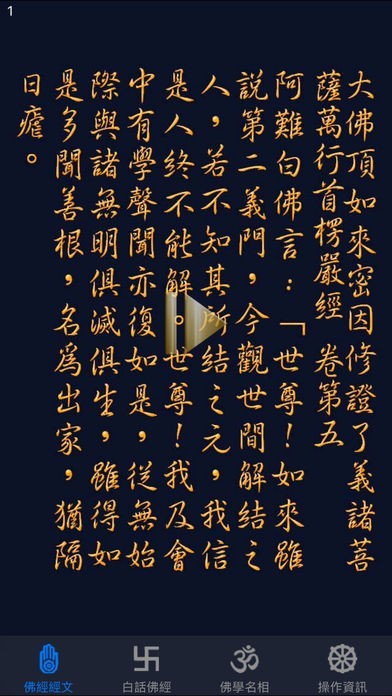 1
大佛頂如來密因修證了義諸菩
薩萬行首楞嚴經 卷第五
阿難白佛言：「世尊！如來雖
說第二義門，今觀世間解結之
人，若不知其所結之元，我信
是人終不能解。世尊！我及會
中有學聲聞亦復如是，從無始
際與諸無明俱滅俱生，雖得如
是多聞善根，名爲出家，猶隔
日瘧。
佛經經文
白話佛經
佛學名相
操作資訊